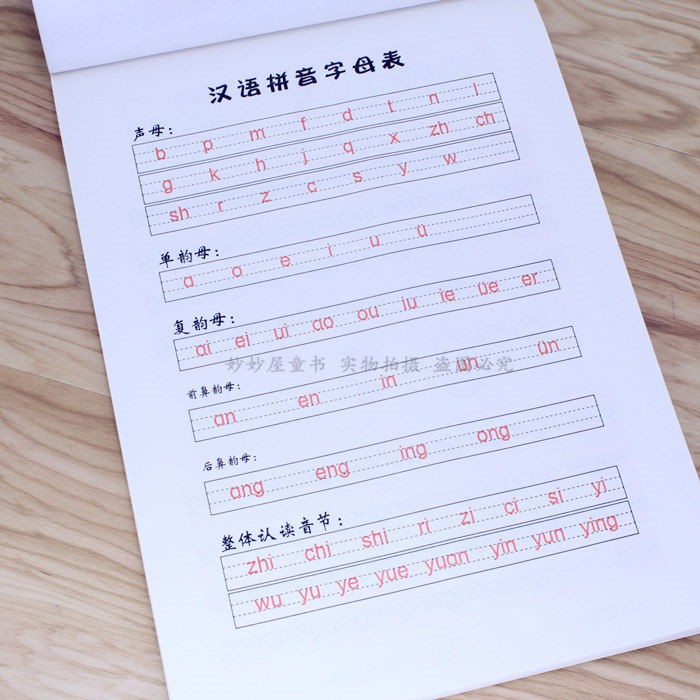 汉语拼音字母表
声母：
b p m f d t n l
g k h j q x zh ch
sh r z c s y w
单韵母：
a o e i u ü
复韵母：
ai ei ui ao ou iu ie üe er
妙妙屋童书 实物拍摄 盗图必究
前鼻韵母：
an en in un ün
后鼻韵母：
ang eng ing ong
整体认读音节：
zhi chi shi ri zi ci si yi
wu yu ye yue yuan yin yun ying